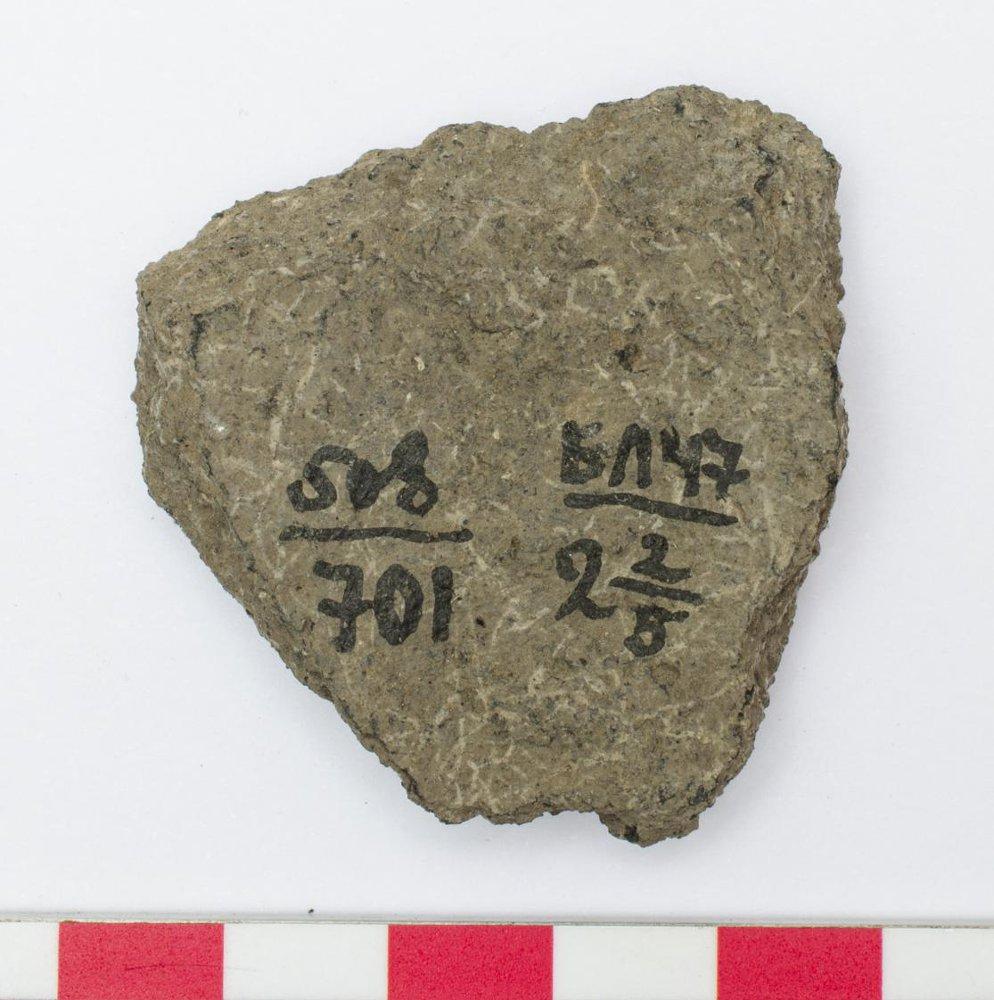 508
701
БЛ 47
2 2/5